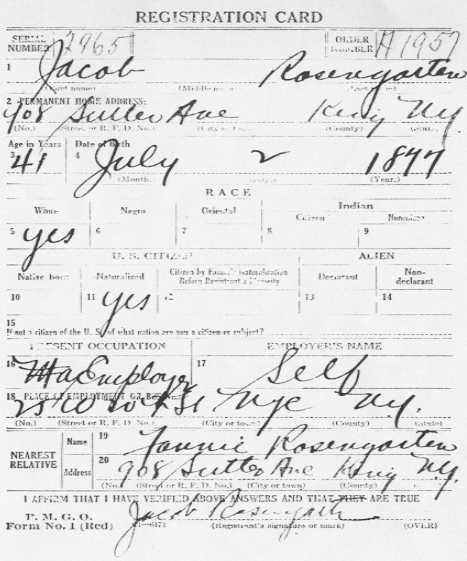 REGISTRATION CARD
SERIAL NUMBER 2965 ORDER NUMBER A1957
1 Jacob Rosengarten
(First name) (Middle name) (Last name)
2 PERMANENT HOME ADDRESS:
908 Sutter Ave Kings N.Y.
(No.) (Street or R. F. D. No.) (City or town) (County) (State)
Age in Years Date of Birth
3 41 4 July 2 1877
(Month.) (Year.)
RACE
White Negro Oriental Indian
Citizen Noncitizen
5 yes 6 7 8 9
U. S. CITIZEN ALIEN
Native born Naturalized Citizen by Father's Naturalization Before Registrant's Majority Declarant Non-declarant
10 11 yes 12 13 14
15
If not a citizen of the U. S., of what nation are you a citizen or subject?
PRESENT OCCUPATION EMPLOYER'S NAME
16 Employer 17 Self
18 PLACE OF EMPLOYMENT OR BUSINESS:
St NYC N.Y.
(No.) (Street or R. F. D. No.) (City or town) (County) (State)
NEAREST RELATIVE Name 19 Fannie Rosengarten
Address 20 908 Sutter Ave Kings N.Y.
(No.) (Street or R. F. D. No.) (City or town) (County) (State)
I AFFIRM THAT I HAVE VERIFIED ABOVE ANSWERS AND THAT THEY ARE TRUE
P. M. G. O.
Form No. 1 (Red) Jacob Rosengarten
(Registrant's signature or mark) (OVER)